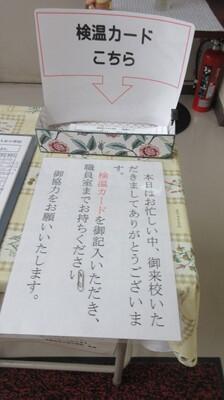 検温カード
こちら
本日はお忙しい中、御来校いた
だきましてありがとうございま
す。
検温カードを御記入いただき、
職員室までお持ちください。
御協力をお願いいたします。